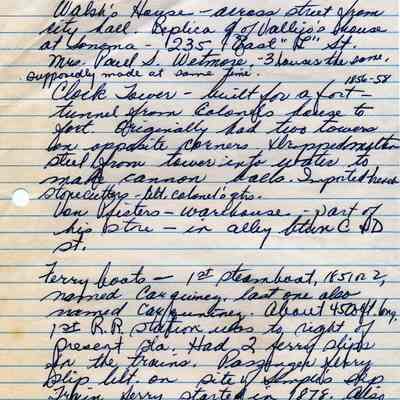 Walsh's House - across street from
city hall. Replica of Vallejo's house
at Sonoma - 235 East "L" St.
Mrs. Paul S. Wetmore, - 3 houses the same,
supposedly made at same time.
1856-58
Clock Tower - built for a fort -
tunnel from Colonel's house to
fort. Originally had two towers
on opposite corners. Dropped molten
steel from tower into water to
make cannon balls. Imported French
stonecutters - blt. colonel's qtrs.
Von Pfisters - warehouse - part of
his store - in alley btwn C & D
st.
Ferry boats - 1st steamboat, 1851 or 2,
named Carquinez, last one also
named Carquinez. About 450 ft. long.
1st R.R. station was to right of
present sta. Had 2 ferry slips
for the trains. Passenger ferry
slip blt. on site of slip
Train ferry started in 1878. Also